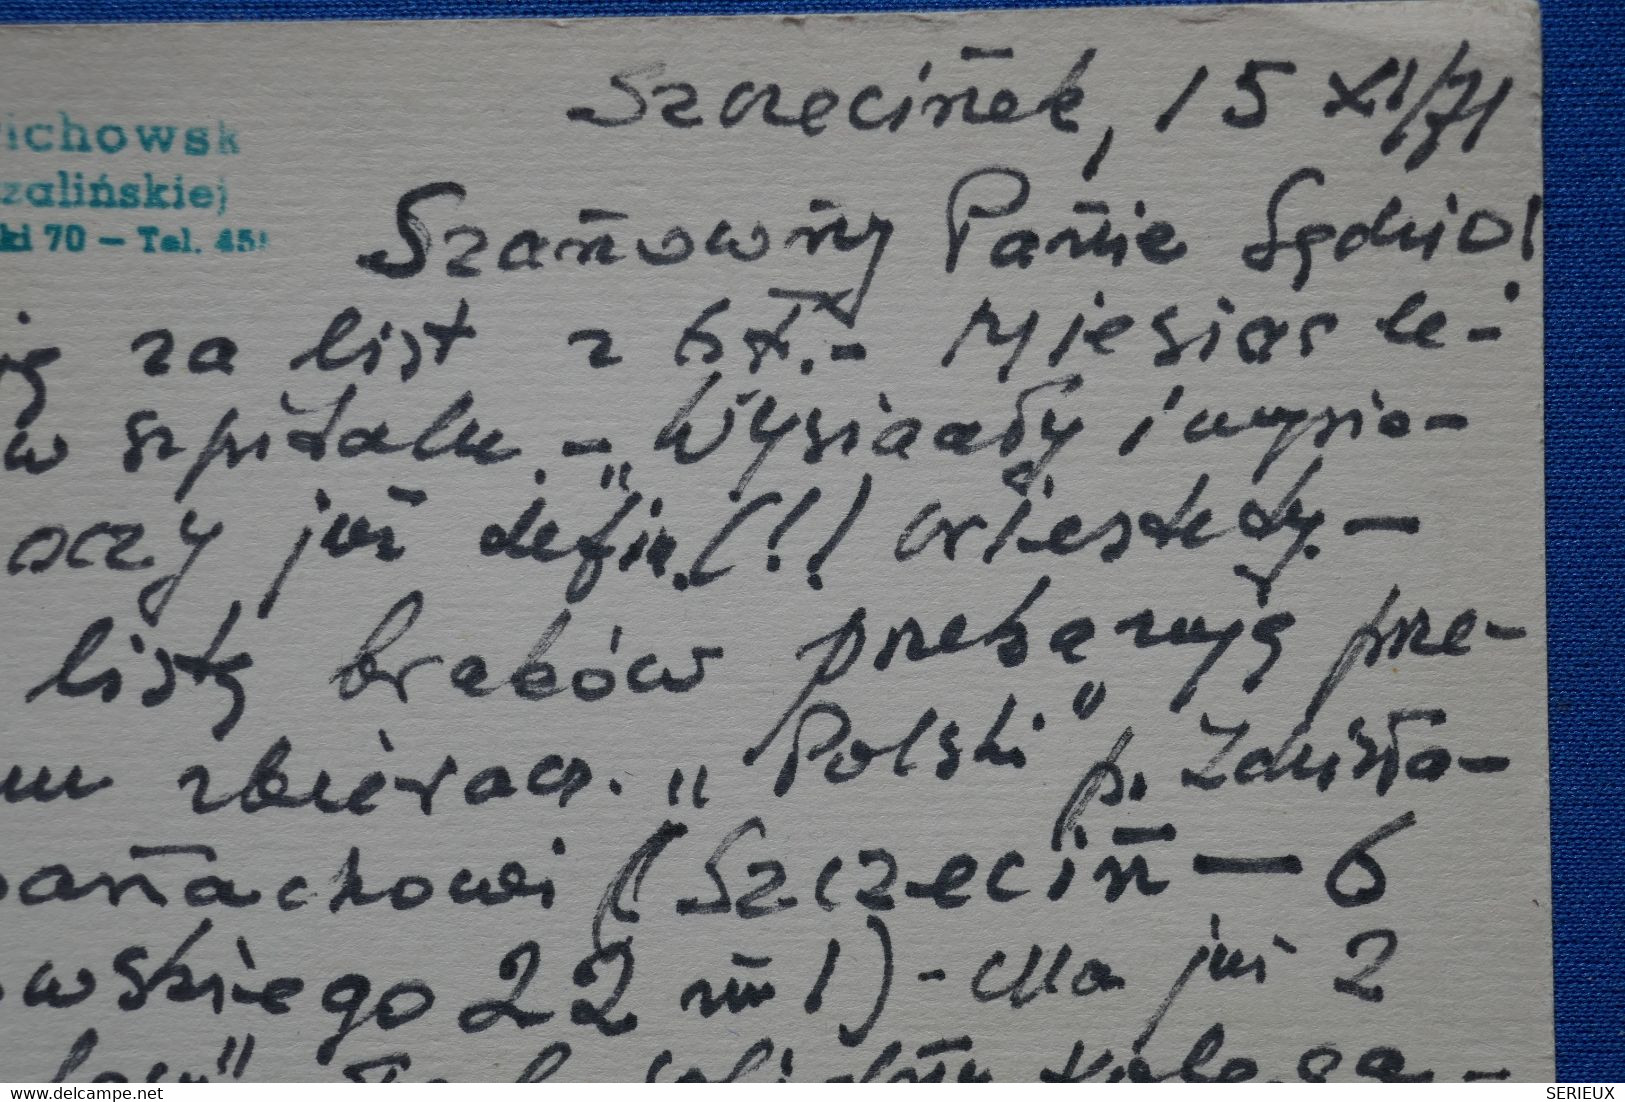 ichowsk
zalińskiej
ki 70 — Tel. 45
Szczecinek, 15 XI/71
Szanowny Panie Sędzio!
za list z 6 XI. - Miesiąc le-
w szpitalu. - „Wysiadły i wysia-
oczy już defin. (!!)
listę braków przekazuję prze-
zbieracz. „Polski" p. Zdzisła-
(Szczecin — 6
wskiego 22 m 1) - Ma już 2
Kolega-
www.delcampe.net
SERIEUX